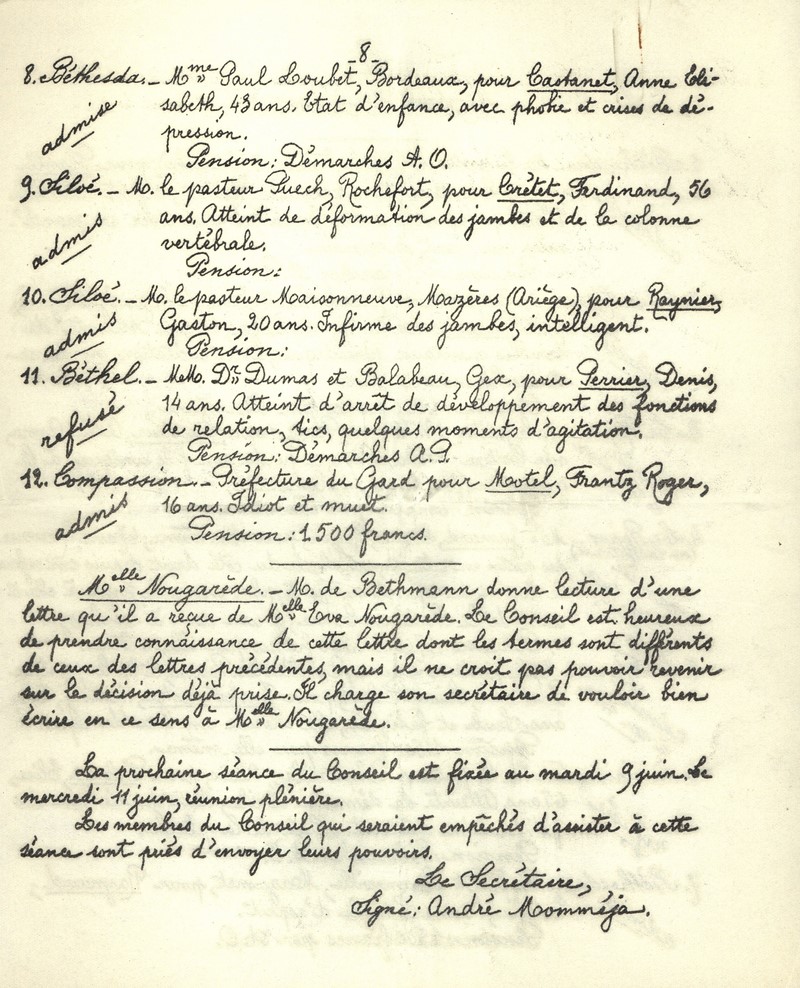 _8_
8. Béthesda. _ Mme Paul Loubet, Bordeaux, pour Castanet, Anne Eli-
admise
sabeth, 43 ans. Etat d'enfance, avec phobie et crises de dé-
pression.
Pension: Démarches A. O.
9. Siloé. _ M. le pasteur Puech, Rochefort, pour Crétet, Ferdinand, 56
admis
ans. Atteint de déformation des jambes et de la colonne
vertébrale.
Pension:
10. Siloé. _ M. le pasteur Maisonneuve, Mazères (Ariège), pour Raynier,
admis
Gaston, 20 ans. Infirme des jambes, intelligent.
Pension:
11. Béthel. _ MM. Drs Dumas et Balabeau, Gex, pour Perrier, Denis,
refusé
14 ans. Atteint d'arrêt de développement des fonctions
de relation, tics, quelques moments d'agitation.
Pension: Démarches A. P.
12. Compassion. _ Préfecture du Gard pour Motel, Frantz Roger,
admis
16 ans. Idiot et muet.
Pension: 1500 francs.
Melle Nougarède. _ M. de Bethmann donne lecture d'une
lettre qu'il a reçue de Melle Eva Nougarède. Le Conseil est heureux
de prendre connaissance de cette lettre dont les termes sont différents
de ceux des lettres précédentes, mais il ne croit pas pouvoir revenir
sur la décision déjà prise. Il charge son secrétaire de vouloir bien
écrire en ce sens à Melle Nougarède.
La prochaine séance du Conseil est fixée au mardi 9 juin. Le
mercredi 11 juin, réunion plénière.
Les membres du Conseil qui seraient empêchés d'assister à cette
séance sont priés d'envoyer leurs pouvoirs.
Le Secrétaire,
Signé: André Momméja.